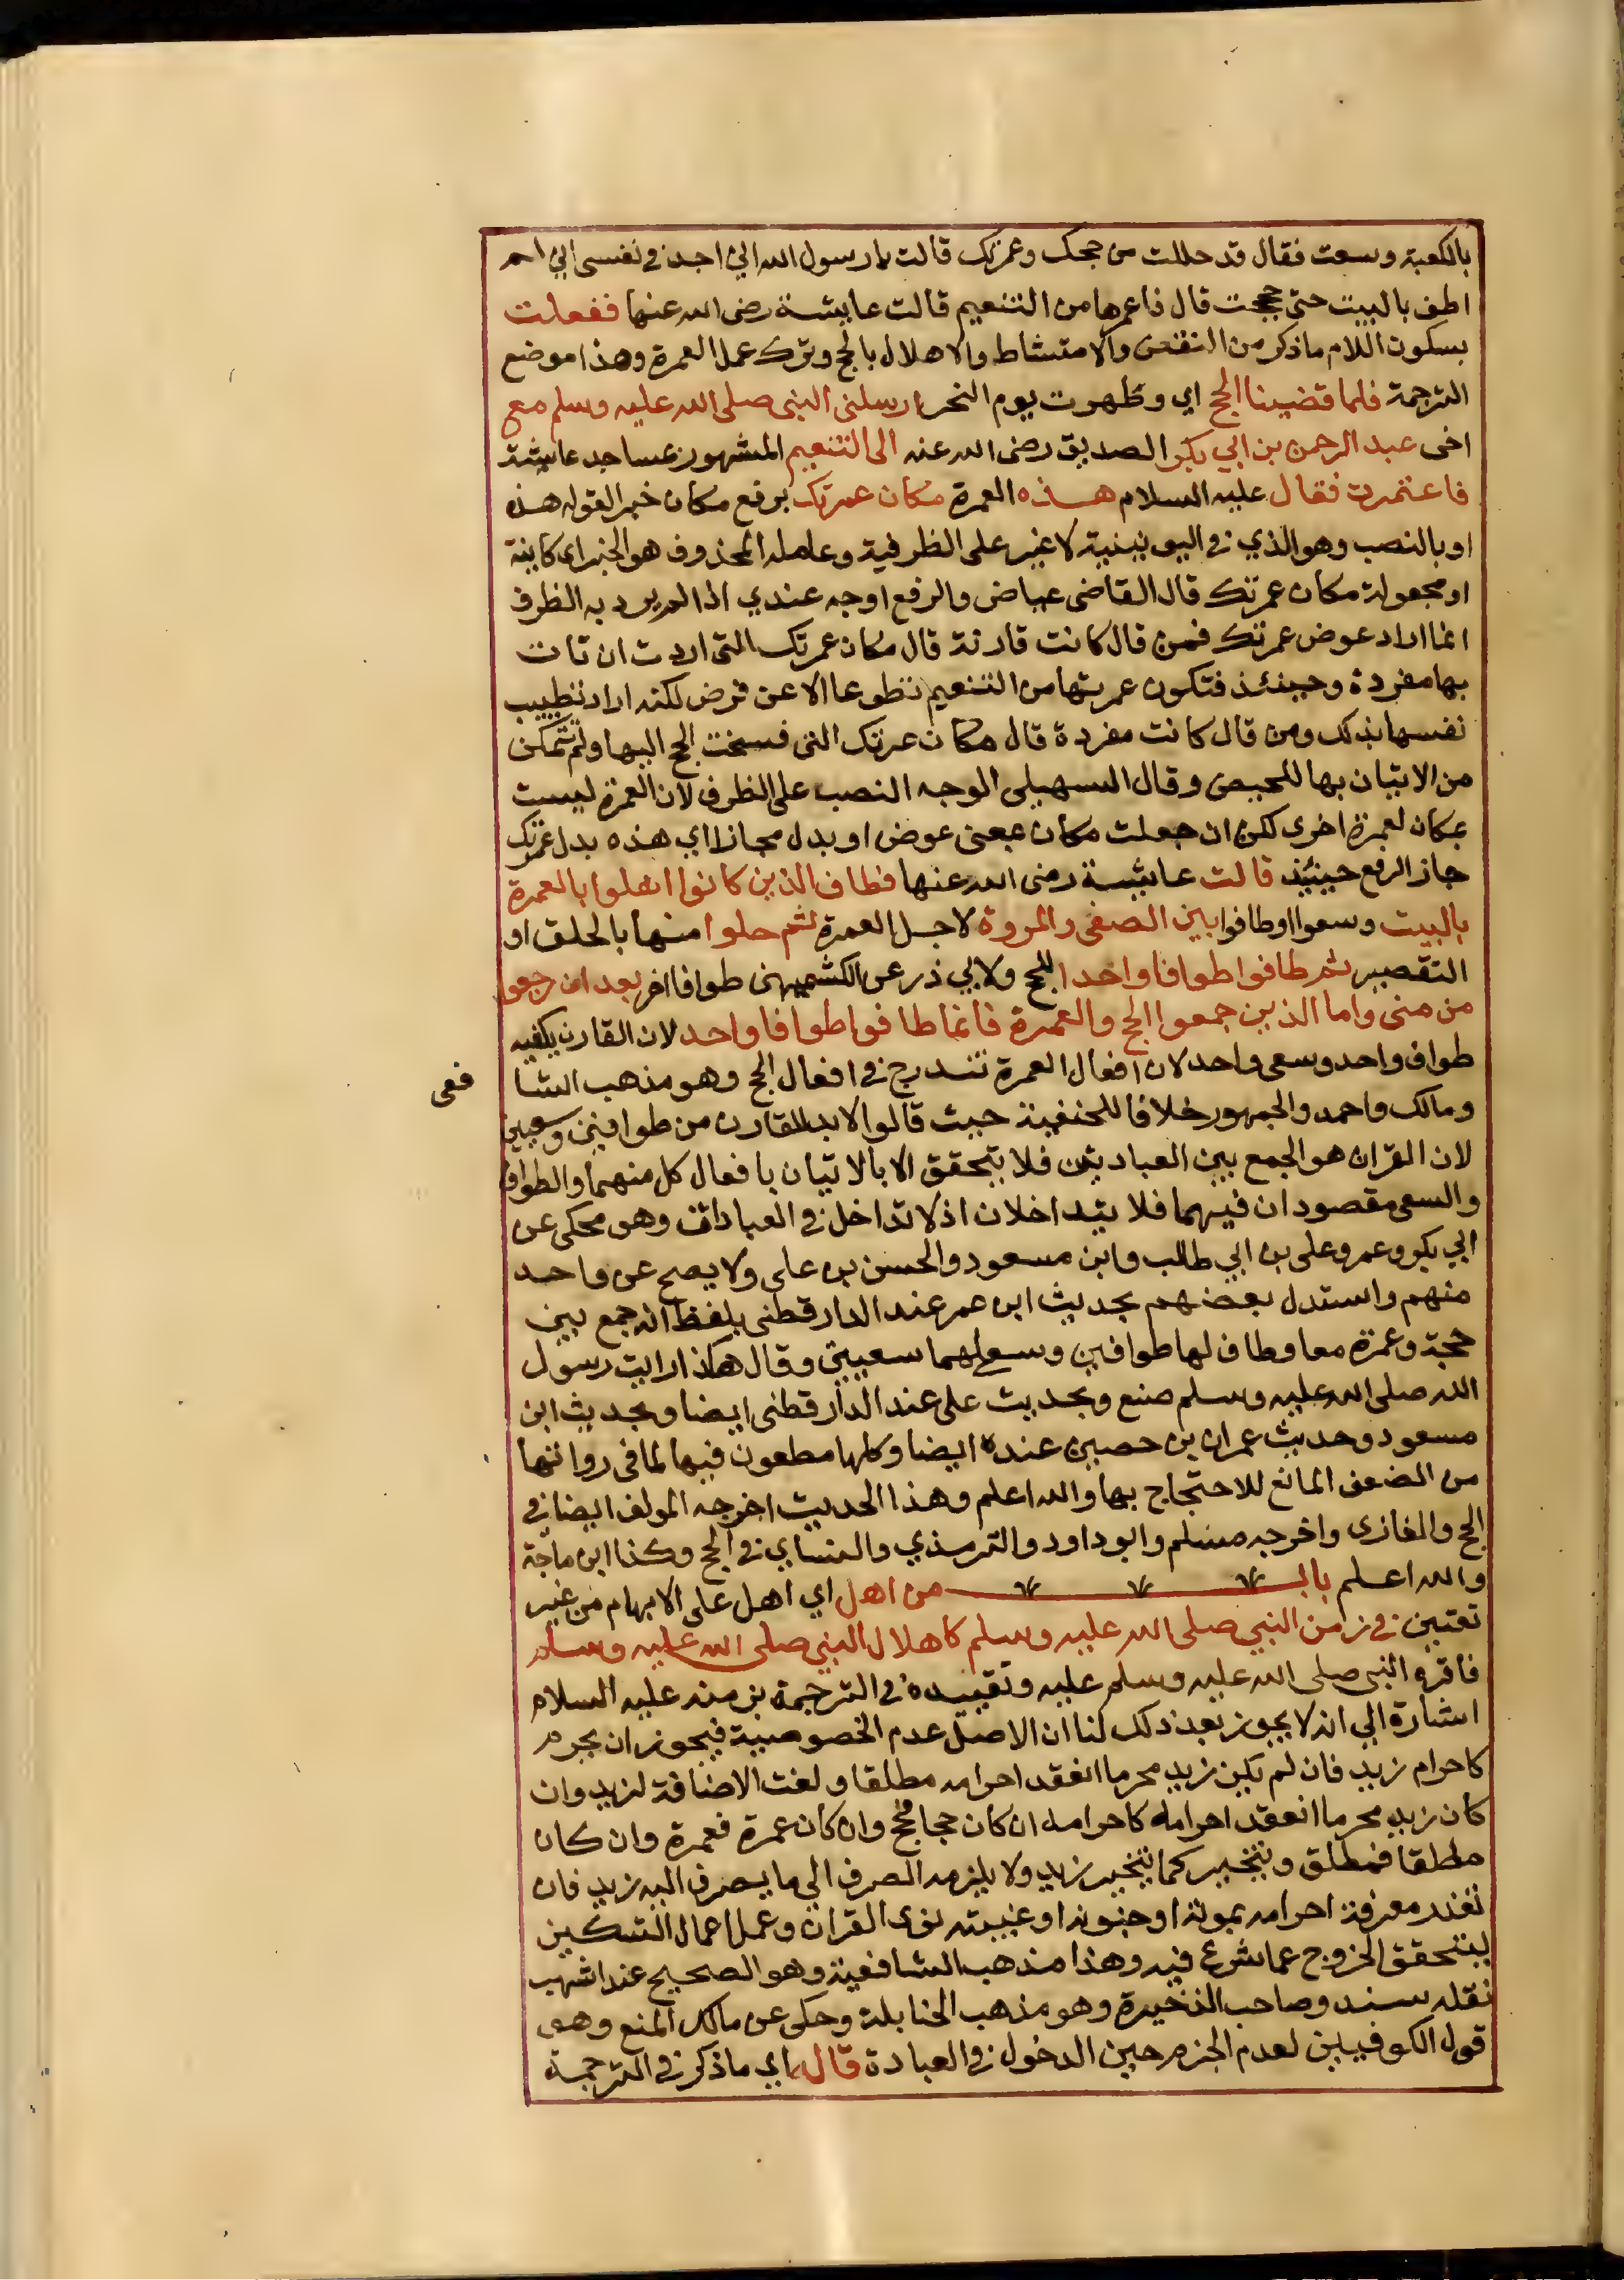 بالكعبة وسعت فقال قد حللت من حجك وعمرتك قالت يا رسول الله اني اجد في نفسي اني لم
اطف بالبيت حتى حججت قال فاعمرها من التنعيم قالت عايشة رضى الله عنها ففعلت
بسكون اللام ماذكر من النقض والامتشاط والاهلال بالحج وترك عمل العمرة وهذا موضع
الترجمة فلما قضينا الحج اي وطهرت يوم النحر ارسلنى النبى صلى الله عليه وسلم مع
اخى عبد الرحمن بن ابي بكر الصديق رضى الله عنه الى التنعيم المشهور بمساجد عايشة
فاعتمرت فقال عليه السلام هذه العمرة مكان عمرتك برفع مكان خبر لقوله هذه
او بالنصب وهو الذي في اليونينية لا غير على الظرفية وعامله المحذوف هو الخبر اى كاينة
او مجعولة مكان عمرتك قال القاضى عياض والرفع اوجه عندي اذ لم يرد به الظرف
انما اراد عوض عمرتك فمن قال كانت قارنة قال مكان عمرتك التى اردت ان تات
بها مفردة وحينئذ فتكون عمرتها من التنعيم تطوعا لا عن فرض لكنه اراد تطييب
نفسها بذلك ومن قال كانت مفردة قال مكان عمرتك التى فسخت الحج اليها ولم تتمكن
من الاتيان بها للحيض وقال السهيلى الوجه النصب على الظرف لان العمرة ليست
بمكان لعمرة اخرى لكن ان جعلت مكان بمعنى عوض او بدل مجازا اي هذه بدل عمرتك
جاز الرفع حينئذ قالت عايشة رضى الله عنها فطاف الذين كانوا اهلوا بالعمرة
بالبيت وسعوا او طافوا بين الصفى والمروة لاجل العمرة ثم حلوا منها بالحلق او
التقصير ثم طافوا طوافا واحدا للحج ولابي ذر عن الكشميهنى طوافا اخر بعد ان رجعوا
من منى واما الذين جمعوا الحج والعمرة فانما طافوا طوافا واحد لان القارن يكفيه
طواف واحد وسعى واحد لان افعال العمرة تندرج في افعال الحج وهو مذهب الشا
فعى
ومالك واحمد والجمهور خلافا للحنفية حيث قالوا لا بد للقارن من طوافين وسعيين
لان القران هو الجمع بين العبادتين فلا يتحقق الا بالاتيان بافعال كل منهما والطواف
والسعى مقصودان فيهما فلا يتداخلان اذ لا تداخل في العبادات وهو محكى عن
ابي بكر وعمر وعلى بن ابي طالب وابن مسعود والحسن بن على ولا يصح عن واحد
منهم واستدل بعضهم بحديث ابن عمر عند الدارقطنى بلفظ انه جمع بين
حجة وعمرة معا وطاف لها طوافين وسعى لهما سعيين وقال هكذا رايت رسول
الله صلى الله عليه وسلم صنع وبحديث على عند الدارقطنى ايضا وبحديث ابن
مسعود وحديث عمران بن حصين عنده ايضا وكلها مطعون فيها لما في رواتها
من الضعف المانع للاحتجاج بها والله اعلم وهذا الحديث اخرجه المولف ايضا في
الحج والمغازى واخرجه مسلم وابو داود والترمذي والنساي في الحج وكذا ابن ماجة
والله اعلم باب من اهل اي اهل على الابهام من غير
تعيين في زمن النبي صلى الله عليه وسلم كاهلال النبي صلى الله عليه وسلم
فاقره النبى صلى الله عليه وسلم عليه وتقييده في الترجمة بزمنه عليه السلام
اشارة الي انه لا يجوز بعد ذلك لنا ان الاصل عدم الخصوصية فيجوز ان يحرم
كاحرام زيد فان لم يكن زيد محرما انعقد احرامه مطلقا ولغت الاضافة لزيد وان
كان زيد محرما انعقد احرامه كاحرامه ان كان حجا فحج وان كان عمرة فعمرة وان كان
مطلقا فمطلق ويتخير كما يتخير زيد ولا يلزمه الصرف الي ما يصرف اليه زيد فان
تعذر معرفة احرامه بموته او جنونه او غيبته نوى القران وعمل اعمال النسكين
ليتحقق الخروج عما شرع فيه وهذا مذهب الشافعية وهو الصحيح عند اشهب
نقله سند وصاحب الذخيرة وهو مذهب الحنابلة وحكى عن مالك المنع وهو
قول الكوفيين لعدم الجزم حين الدخول في العبادة قاله اي ماذكر في الترجمة